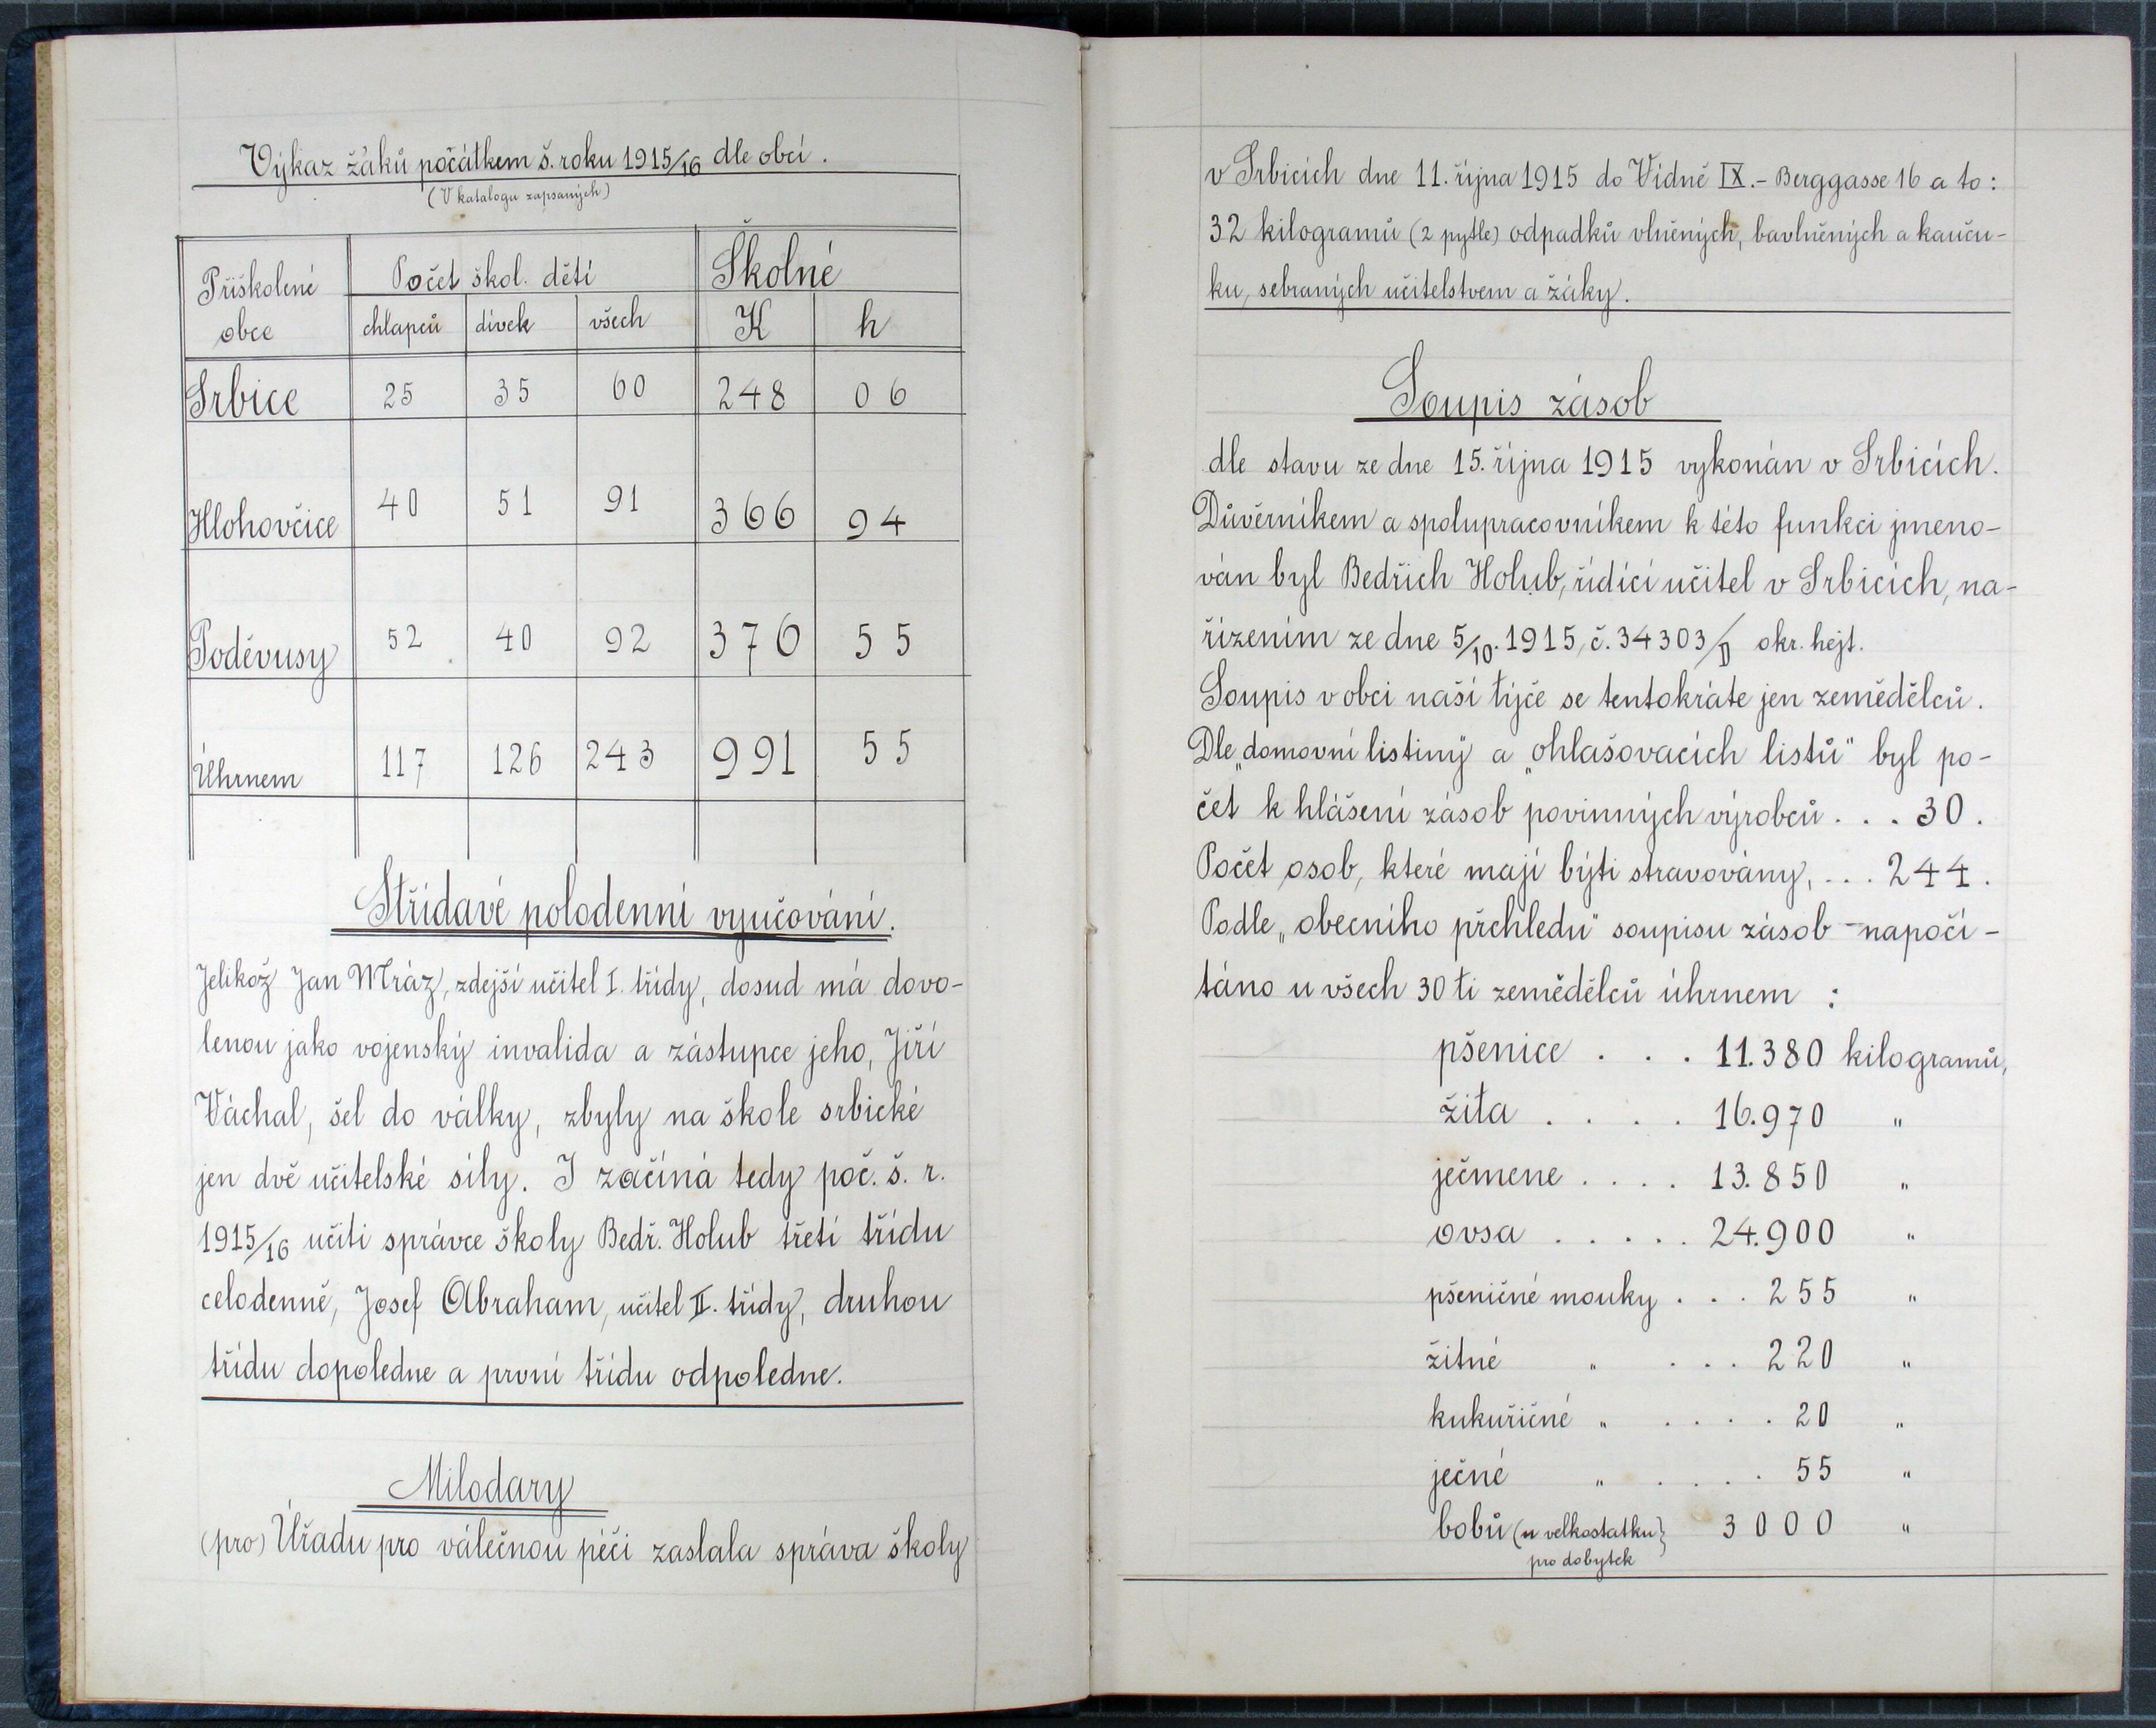 Výkaz žáků počátkem š. roku 1915/16 dle obcí.
(V katalogu zapsaných)
Přiškolené obce | Počet škol. dětí | Školné
chlapců | dívek | všech | K | h
Srbice 25 35 60 248 06
Hlohovčice 40 51 91 366 94
Poděvusy 52 40 92 376 55
Úhrnem 117 126 243 991 55
Střídavé polodenní vyučování.
Jelikož Jan Mráz, zdejší učitel I. třídy, dosud má dovo-
lenou jako vojenský invalida a zástupce jeho, Jiří
Váchal, šel do války, zbyly na škole srbické
jen dvě učitelské síly. I začíná tedy poč. š. r.
1915/16 učiti správce školy Bedř. Holub třetí třídu
celodenně, Josef Abraham, učitel II. třídy, druhou
třídu dopoledne a první třídu odpoledne.
Milodary
(pro) Úřadu pro válečnou péči zaslala správa školy
v Srbicích dne 11. října 1915 do Vídně IX.- Berggasse 16 a to:
32 kilogramů (2 pytle) odpadků vlněných, bavlněných a kauču-
ku, sebraných učitelstvem a žáky.
Soupis zásob
dle stavu ze dne 15. října 1915 vykonán v Srbicích.
Důvěrníkem a spolupracovníkem k této funkci jmeno-
ván byl Bedřich Holub, řídící učitel v Srbicích, na-
řízením ze dne 5/10. 1915, č. 34303/II okr. hejt.
Soupis v obci naší týče se tentokráte jen zemědělců.
Dle „domovní listiny" a „ohlašovacích listů" byl po-
čet k hlášení zásob povinných výrobců . . . 30.
Počet osob, které mají býti stravovány, . . . 244.
Podle „obecního přehledu" soupisu zásob - napočí-
táno u všech 30 ti zemědělců úhrnem :
pšenice . . . 11.380 kilogramů,
žita . . . . 16.970 "
ječmene . . . . 13.850 "
ovsa . . . . . 24.900 "
pšeničné mouky . . . 255 "
žitné " . . . 220 "
kukuřičné " . . . . 20 "
ječné " . . . . 55 "
bobů (u velkostatku) 3000 "
pro dobytek